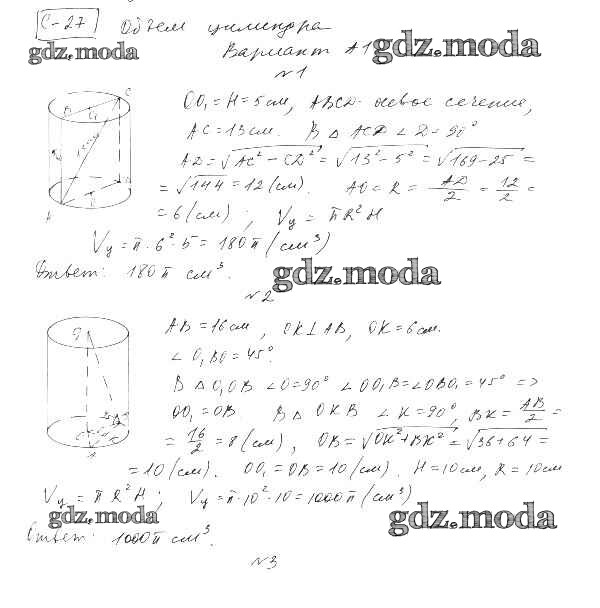 С-27 Объем цилиндра
gdz.moda Вариант А1 gdz.moda
№1
OO₁ = H = 5 см, ABCD - осевое сечение,
AC = 13 см. В △ ACD ∠D = 90°
AD = √AC² - CD² = √13² - 5² = √169 - 25 =
= √144 = 12 (см). AO = R = AD/2 = 12/2 =
= 6 (см); Vц = πR²H
Vц = π · 6² · 5 = 180π (см³)
Ответ: 180π см³.
gdz.moda
№2
AB = 16 см, OK ⊥ AB, OK = 6 см.
∠ O₁BO = 45°.
В △ O₁OB ∠O = 90° ∠OO₁B = ∠OBO₁ = 45° =>
OO₁ = OB. В △ OKB ∠K = 90°, BK = AB/2 =
= 16/2 = 8 (см), OB = √OK² + BK² = √36 + 64 =
= 10 (см). OO₁ = OB = 10 (см). H = 10 см, R = 10 см
Vц = πR²H; Vц = π · 10² · 10 = 1000π (см³)
gdz.moda gdz.moda
Ответ: 1000π см³.
№3